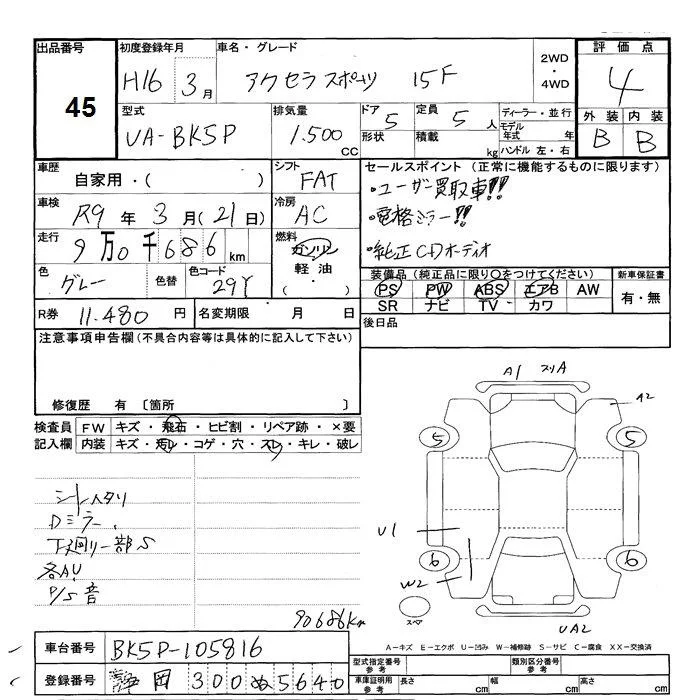 出品番号 初度登録年月 車名・グレード 2WD ・ 4WD 評価点
45 H16 3月 アクセラスポーツ 15F 4
型式 排気量 ドア 5 定員 5人 ディーラー・並行 外装 内装
UA-BK5P 1.500 cc 形状 積載 kg モデル年式 年 ハンドル 左・右 B B
車歴 自家用・( ) シフト FAT セールスポイント (正常に機能するものに限ります)
車検 R9年3月(21日) 冷房 AC ・ユーザー買取車!!
走行 9万0千686km 燃料 ガソリン 軽油 ( ・ ) ・電格ミラー!!
・純正CDオーディオ
色 グレー 色替 色コード 29Y
装備品 (純正品に限り○をつけてください) 新車保証書
PS PW ABS エアB AW 有・無
SR ナビ TV カワ
R券 11.480円 名変期限 月 日 後日品
注意事項申告欄 (不具合内容等は具体的に記入して下さい)
修復歴 有 〔箇所 〕
検査員記入欄 FW キズ・飛石・ヒビ割・リペア跡・×要
内装 キズ・汚レ・コゲ・穴・スレ・キレ・破レ
シートヘタリ
Dミラー.
下廻リ一部S
各AU
P/S音
90686km
A1 スリA
A2
5 5
U1
6 6
W2
スペア
UA2
A-キズ E-エクボ U-凹み W-補修跡 S-サビ C-腐食 XX-交換済
車台番号 BK5P-105816
登録番号 静岡 300 ぬ 5640
型式指定番号 参考 類別区分番号 参考
車庫証明用 参考 長さ cm 幅 cm 高さ cm